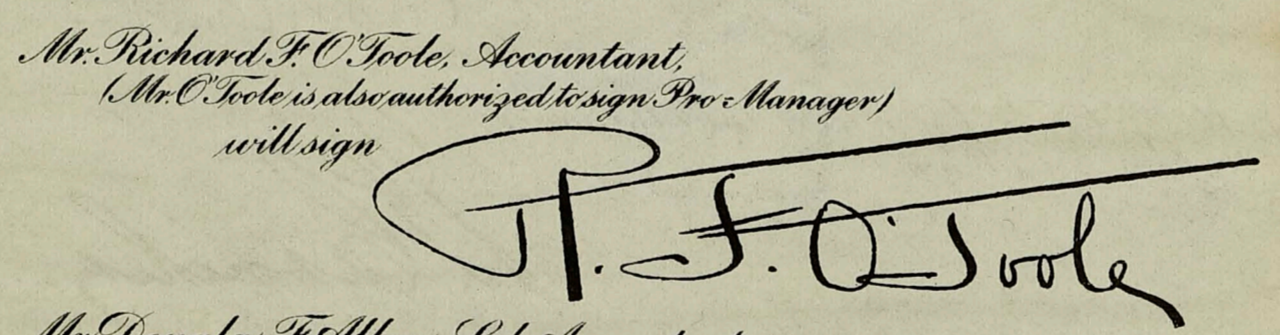 Mr. Richard F. O'Toole, Accountant,
(Mr. O'Toole is also authorized to sign Pro-Manager)
will sign R. F. O'Toole
Mr.